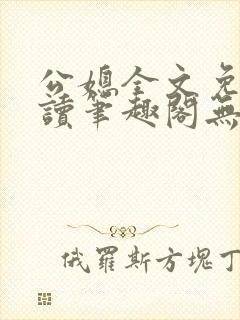 公媳全文免
讀筆趣閣無
俄羅斯方塊丁